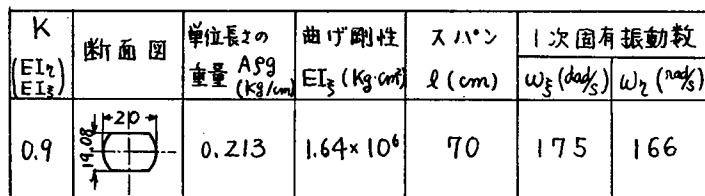 K
(EIη/EIξ)
断面図
単位長さの
重量 Aρg
(Kg/cm)
曲げ剛性
EIξ (Kg·cm²)
スパン
l (cm)
1次固有振動数
ωξ (dad/s)
ωη (rad/s)
0.9
20
19.08
0.213
1.64×10⁶
70
175
166